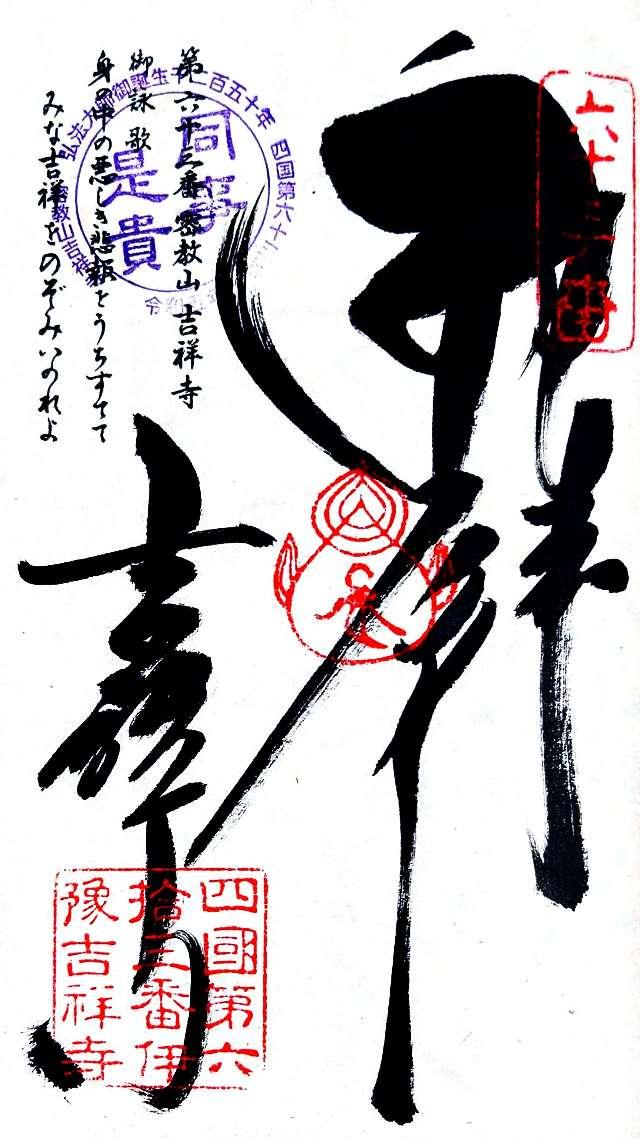 六十三番
奉拝
第六十三番 密教山 吉祥寺
御詠歌
身の中の悪しき悲報をうちすてて
みな吉祥をのぞみいのれよ
弘法大師御誕生
百五十年
四国第六十三
密教山吉祥
同事
是貴
吉祥寺
四國第六
拾三番伊
豫吉祥寺